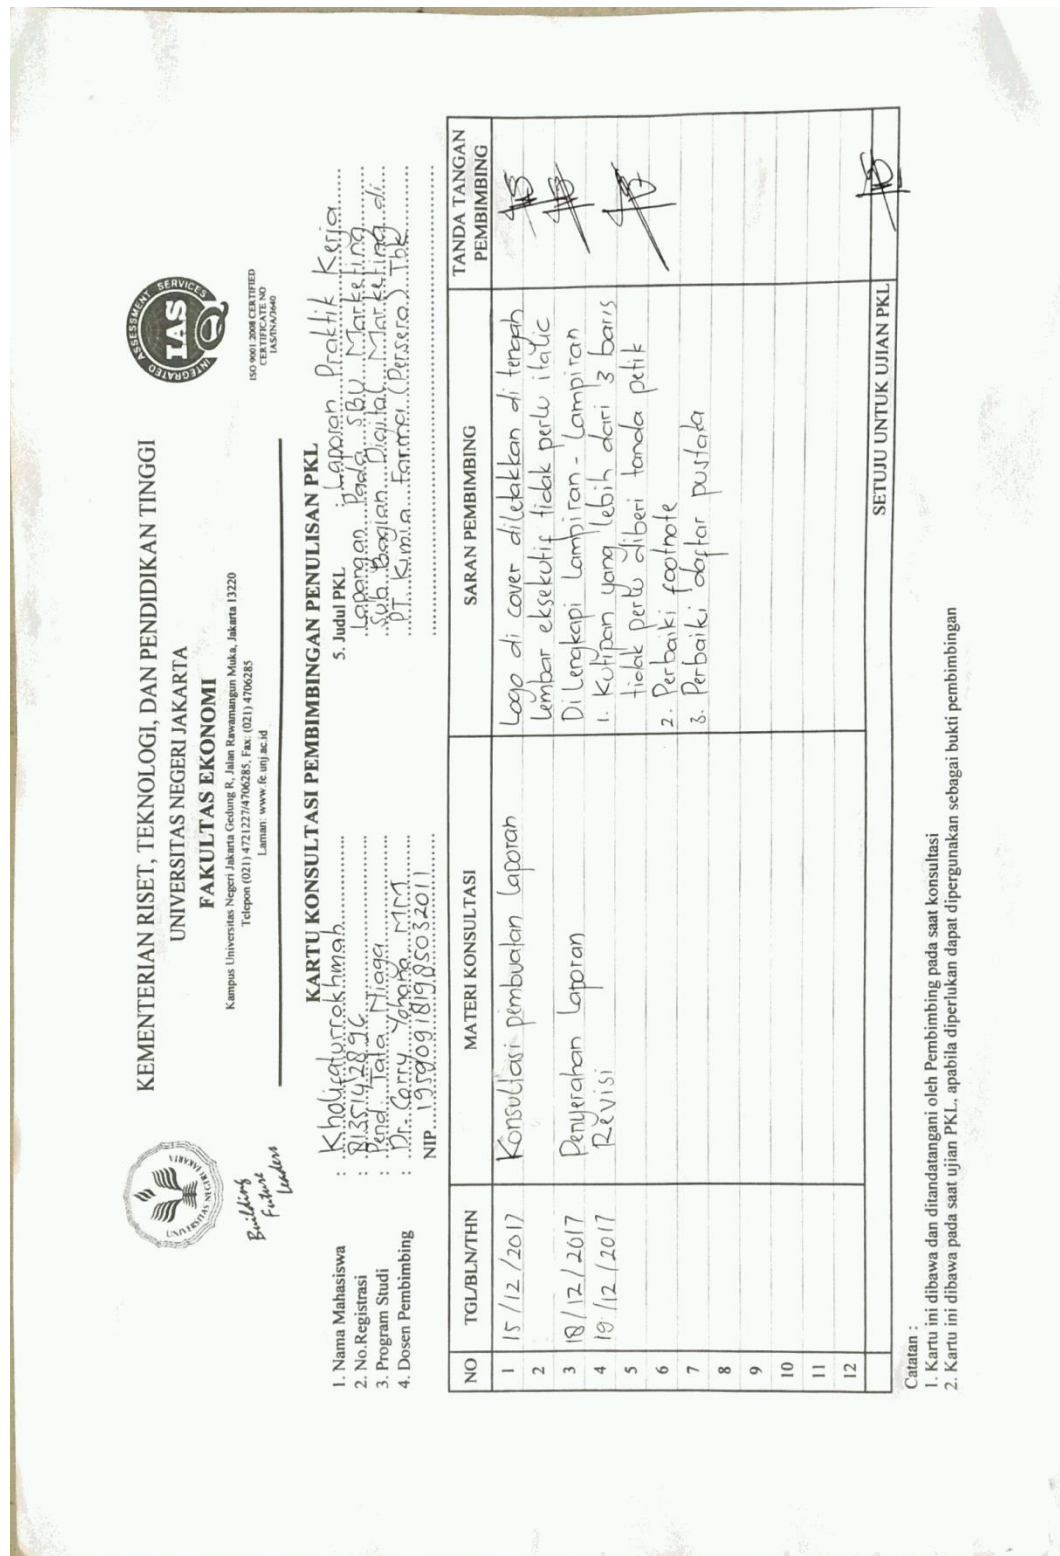 KEMENTERIAN RISET, TEKNOLOGI, DAN PENDIDIKAN TINGGI
UNIVERSITAS NEGERI JAKARTA
FAKULTAS EKONOMI
Kampus Universitas Negeri Jakarta Gedung R, Jalan Rawamangun Muka, Jakarta 13220
Telepon (021) 4721227/4706285, Fax: (021) 4706285
Laman: www.fe.unj.ac.id
UNIVERSITAS NEGERI JAKARTA
Building
Future
Leaders
INTEGRATED ASSESSMENT SERVICES
IAS
ISO 9001:2008 CERTIFIED
CERTIFICATE NO
IAS/INA/3640
KARTU KONSULTASI PEMBIMBINGAN PENULISAN PKL
1. Nama Mahasiswa : Kholifaturrokhmah
2. No.Registrasi : 8135142896
3. Program Studi : Pend. Tata Niaga
4. Dosen Pembimbing : Dr. Corry Yohana MM
NIP. 195909181985032011
5. Judul PKL : Laporan Praktik Kerja
Lapangan Pada SBU Marketing
Sub Bagian Digital Marketing di
PT Kimia Farma (Persero) Tbk
NO TGL/BLN/THN MATERI KONSULTASI SARAN PEMBIMBING TANDA TANGAN PEMBIMBING
1 15/12/2017 Konsultasi pembuatan laporan Logo di cover diletakkan di tengah
2 Lembar eksekutif tidak perlu italic
3 18/12/2017 Penyerahan Laporan Di Lengkapi Lampiran - Lampiran
4 19/12/2017 Revisi 1. Kutipan yang lebih dari 3 baris
5 tidak perlu diberi tanda petik
6 2. Perbaiki footnote
7 3. Perbaiki daftar pustaka
8
9
10
11
12
SETUJU UNTUK UJIAN PKL
Catatan :
1. Kartu ini dibawa dan ditandatangani oleh Pembimbing pada saat konsultasi
2. Kartu ini dibawa pada saat ujian PKL, apabila diperlukan dapat dipergunakan sebagai bukti pembimbingan